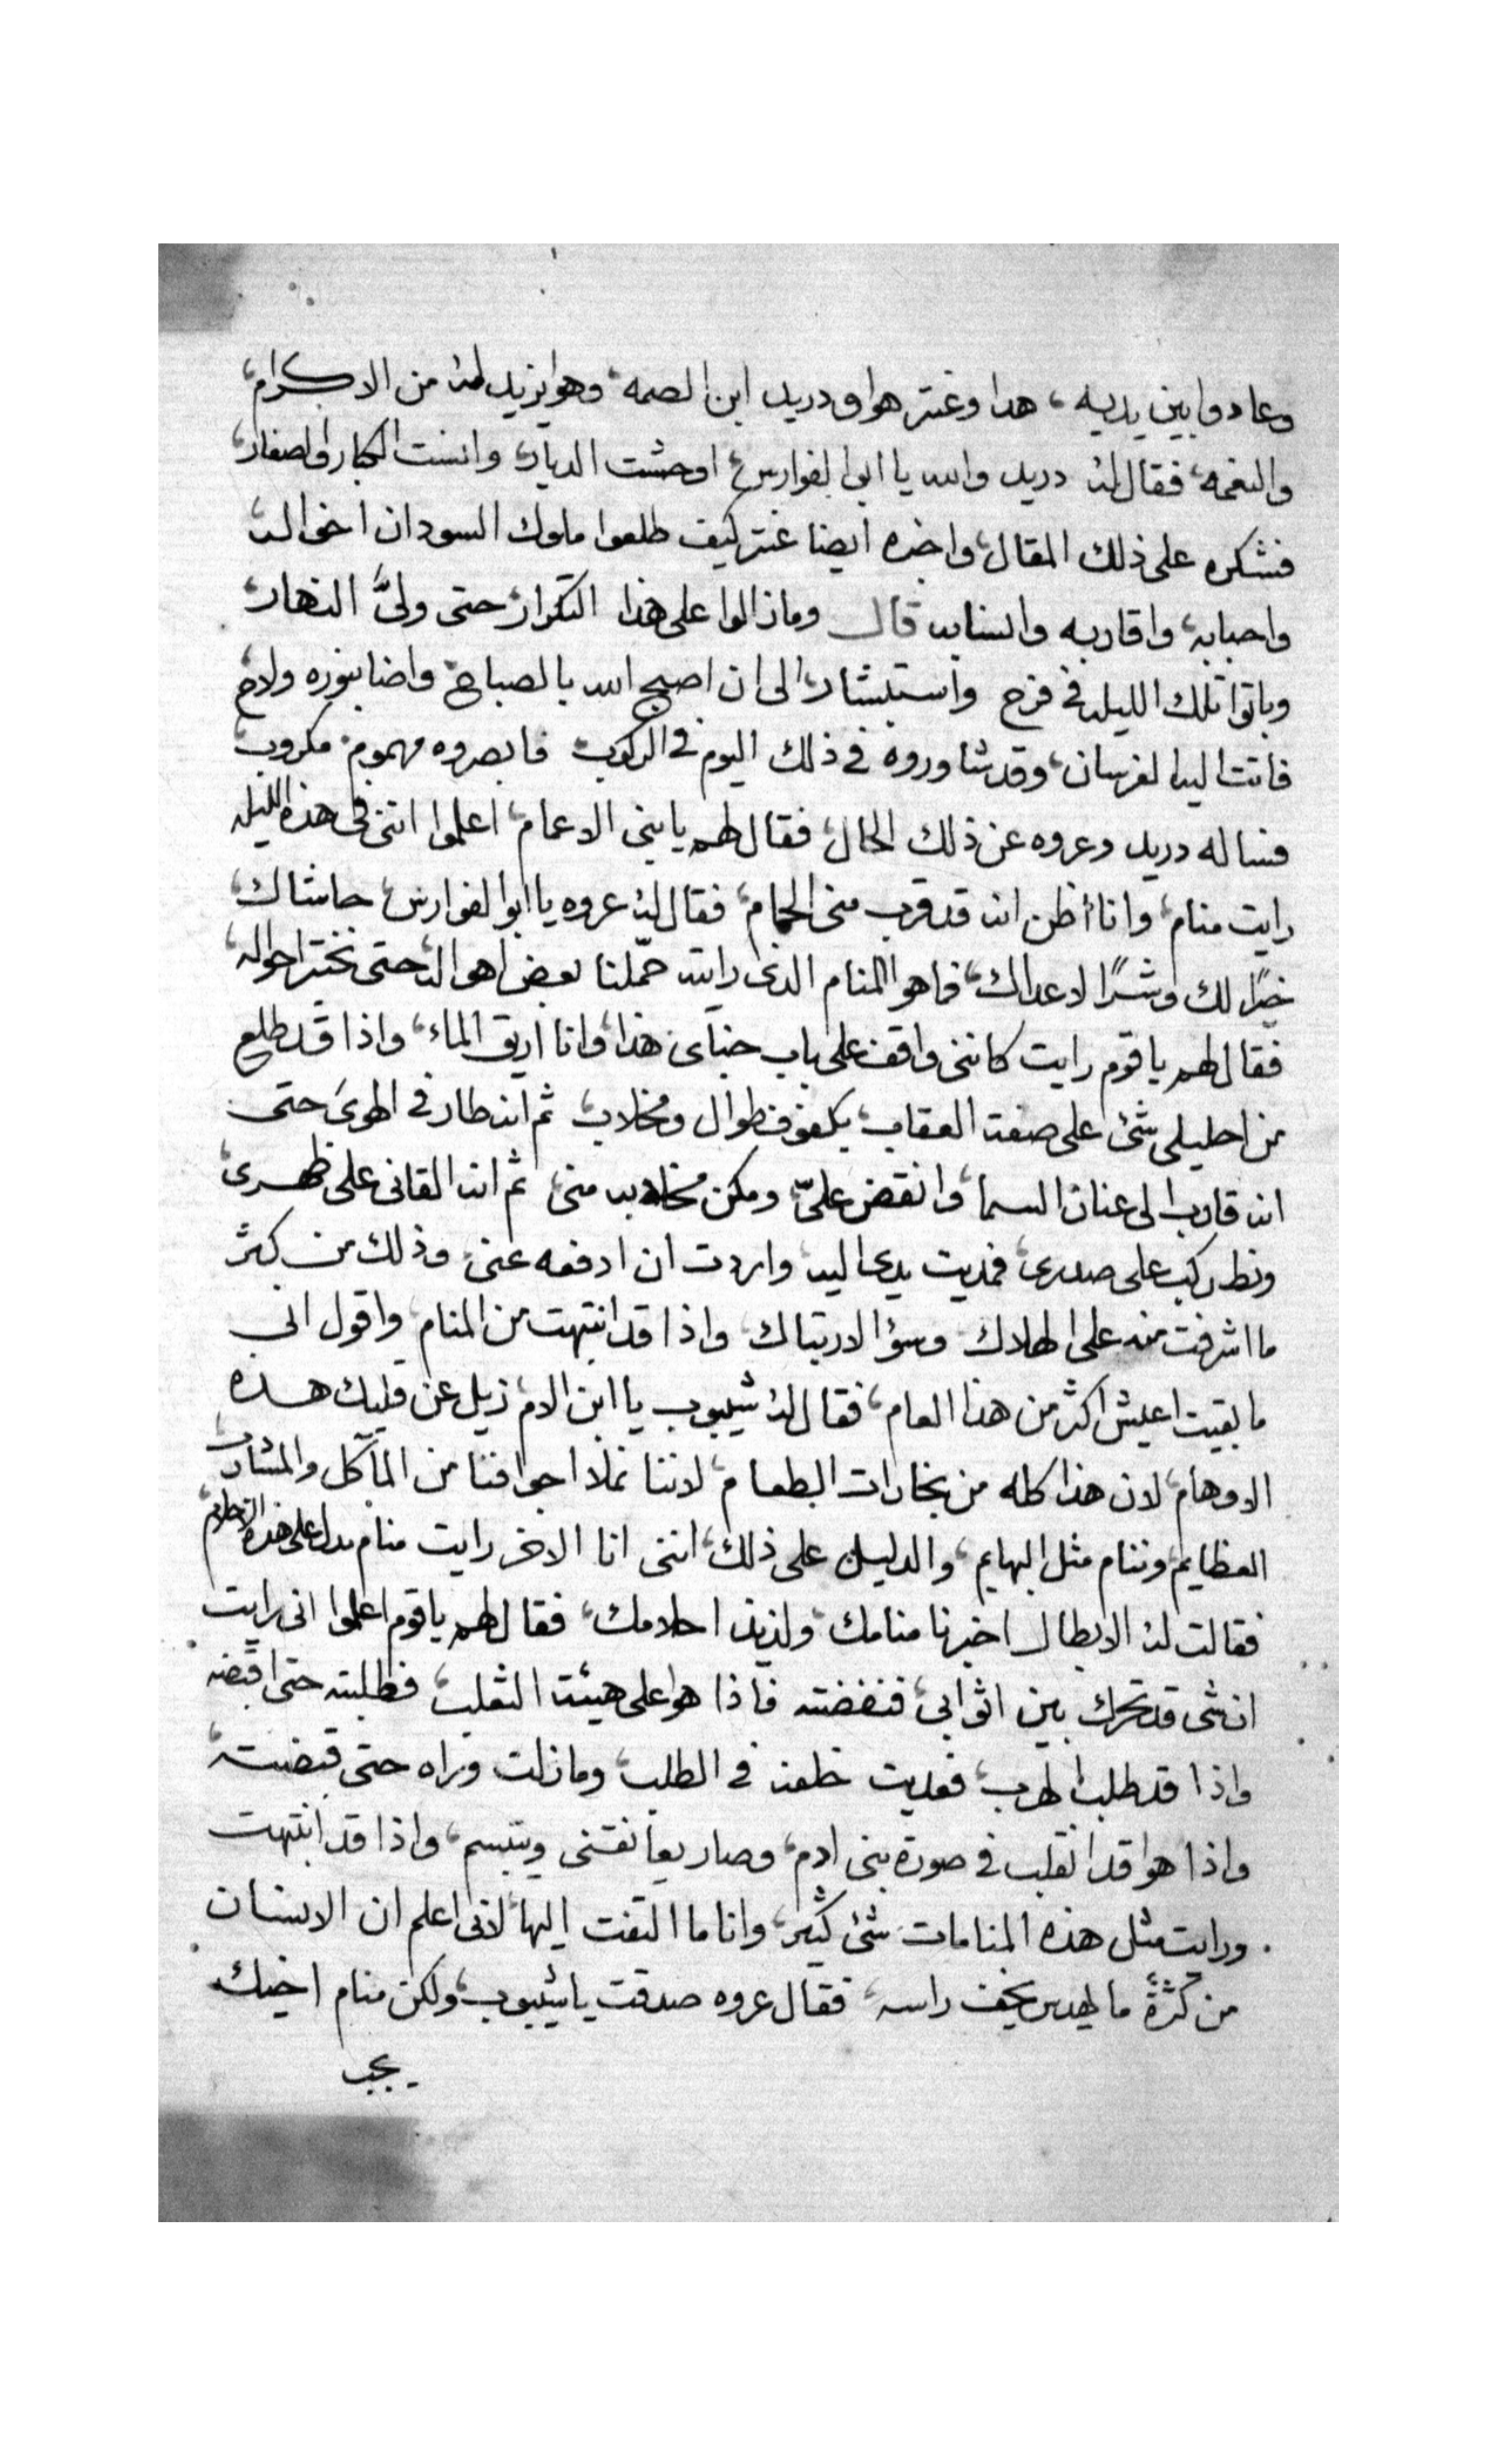 وعادوا بين يديه، هدا وعنتر هوا ودريد ابن الصمه، وهوا يزيد لهُ من الاكرام،
والنعمه، فقال لهُ دريد والله يا ابوا لفوارس، اوحشت الديار، وانست الكبار والصغار،
فشكره على ذلك المقال، واخبره ايضا عنتر كيف طلعوا ملوك السودان اخواله،
واحبابه، واقاربه وانسابه قال وماذالوا على هذا التكرار، حتى وليَّ النهار،
وباتوا تلك الليله في فرح واستبشار، الى ان اصبح الله بالصباح، واضا بنوره ولاح،
فاتت اليه الفرسان، وقد شاوروه في ذلك اليوم في الركوب فابصروه مهموم، مكروب،
فساله دريد وعروه عن ذلك الحال، فقال لهم يا بني الاعمام، اعلموا انني في هذه الليله
رايت منام، وانا اظن انه قد قرب مني الحمام، فقال لهُ عروه يا ابوا لفوارس، حاشاك،
خيرًا لك وشرًا لاعداك، فما هوا المنام الذي رايته حمّلنا بعض اهواله، حتى نختبر احواله،
فقال لهم يا قوم رايت كانني واقف على باب خباى هذا، وانا اريق الماء، واذا قد طلع
من احليلي شئ على صفة العقاب، بكفوف طوال ومخلاب، ثم انه طار في الهوىَ حتى
انه قارب الى عنان السما، وانقض عليّ، ومكن مخالبه مني، ثم انه القاني على ظهرى،
ونط ركب على صدرى، فمديت يدى اليه، واردت ان ادفعه عني، وذلك من كثر
ما اشرفت منه على الهلاك، وسؤ الارتباك، واذا قد انتبهت من المنام، واقول اني
ما بقيت اعيش اكثر من هذا العام، فقال لهُ شيبوب يا ابن الام، زيل عن قلبك هذه
الاوهام، لان هذا كله من بخارات الطعام، لاننا نملا اجوافنا من المآكل والمشارب،
العظايم، وننام مثل البهايم، والدليل على ذلك، انني انا الاخر رايت منام يدل على هذه الاحلام،
فقالت لهُ الابطال اخبرنا منامك، ولذيذ احلامك، فقال لهم يا قوم اعلموا انى رايت
ان شى قد تحرك بين اثوابي، فنفضته فاذا هوا على هيئة الثعلب، فطلبته حتى اقبضه
واذا قد طلب الهرب، فعديت خلفه في الطلب، وما زلت وراه حتى قبضته،
واذا هوا قد انقلب في صورة بني ادم، وصار يعانقني ويتبسم، واذا قد انتبهت
ورايت مثل هذه المنامات شئ كثير، وانا ما التفت اليها، لاني اعلم ان الانسان
من كثرةً ما يهدس يخف راسه، فقال عروه صدقت يا شيبوب، ولكن منام اخيك
يجب